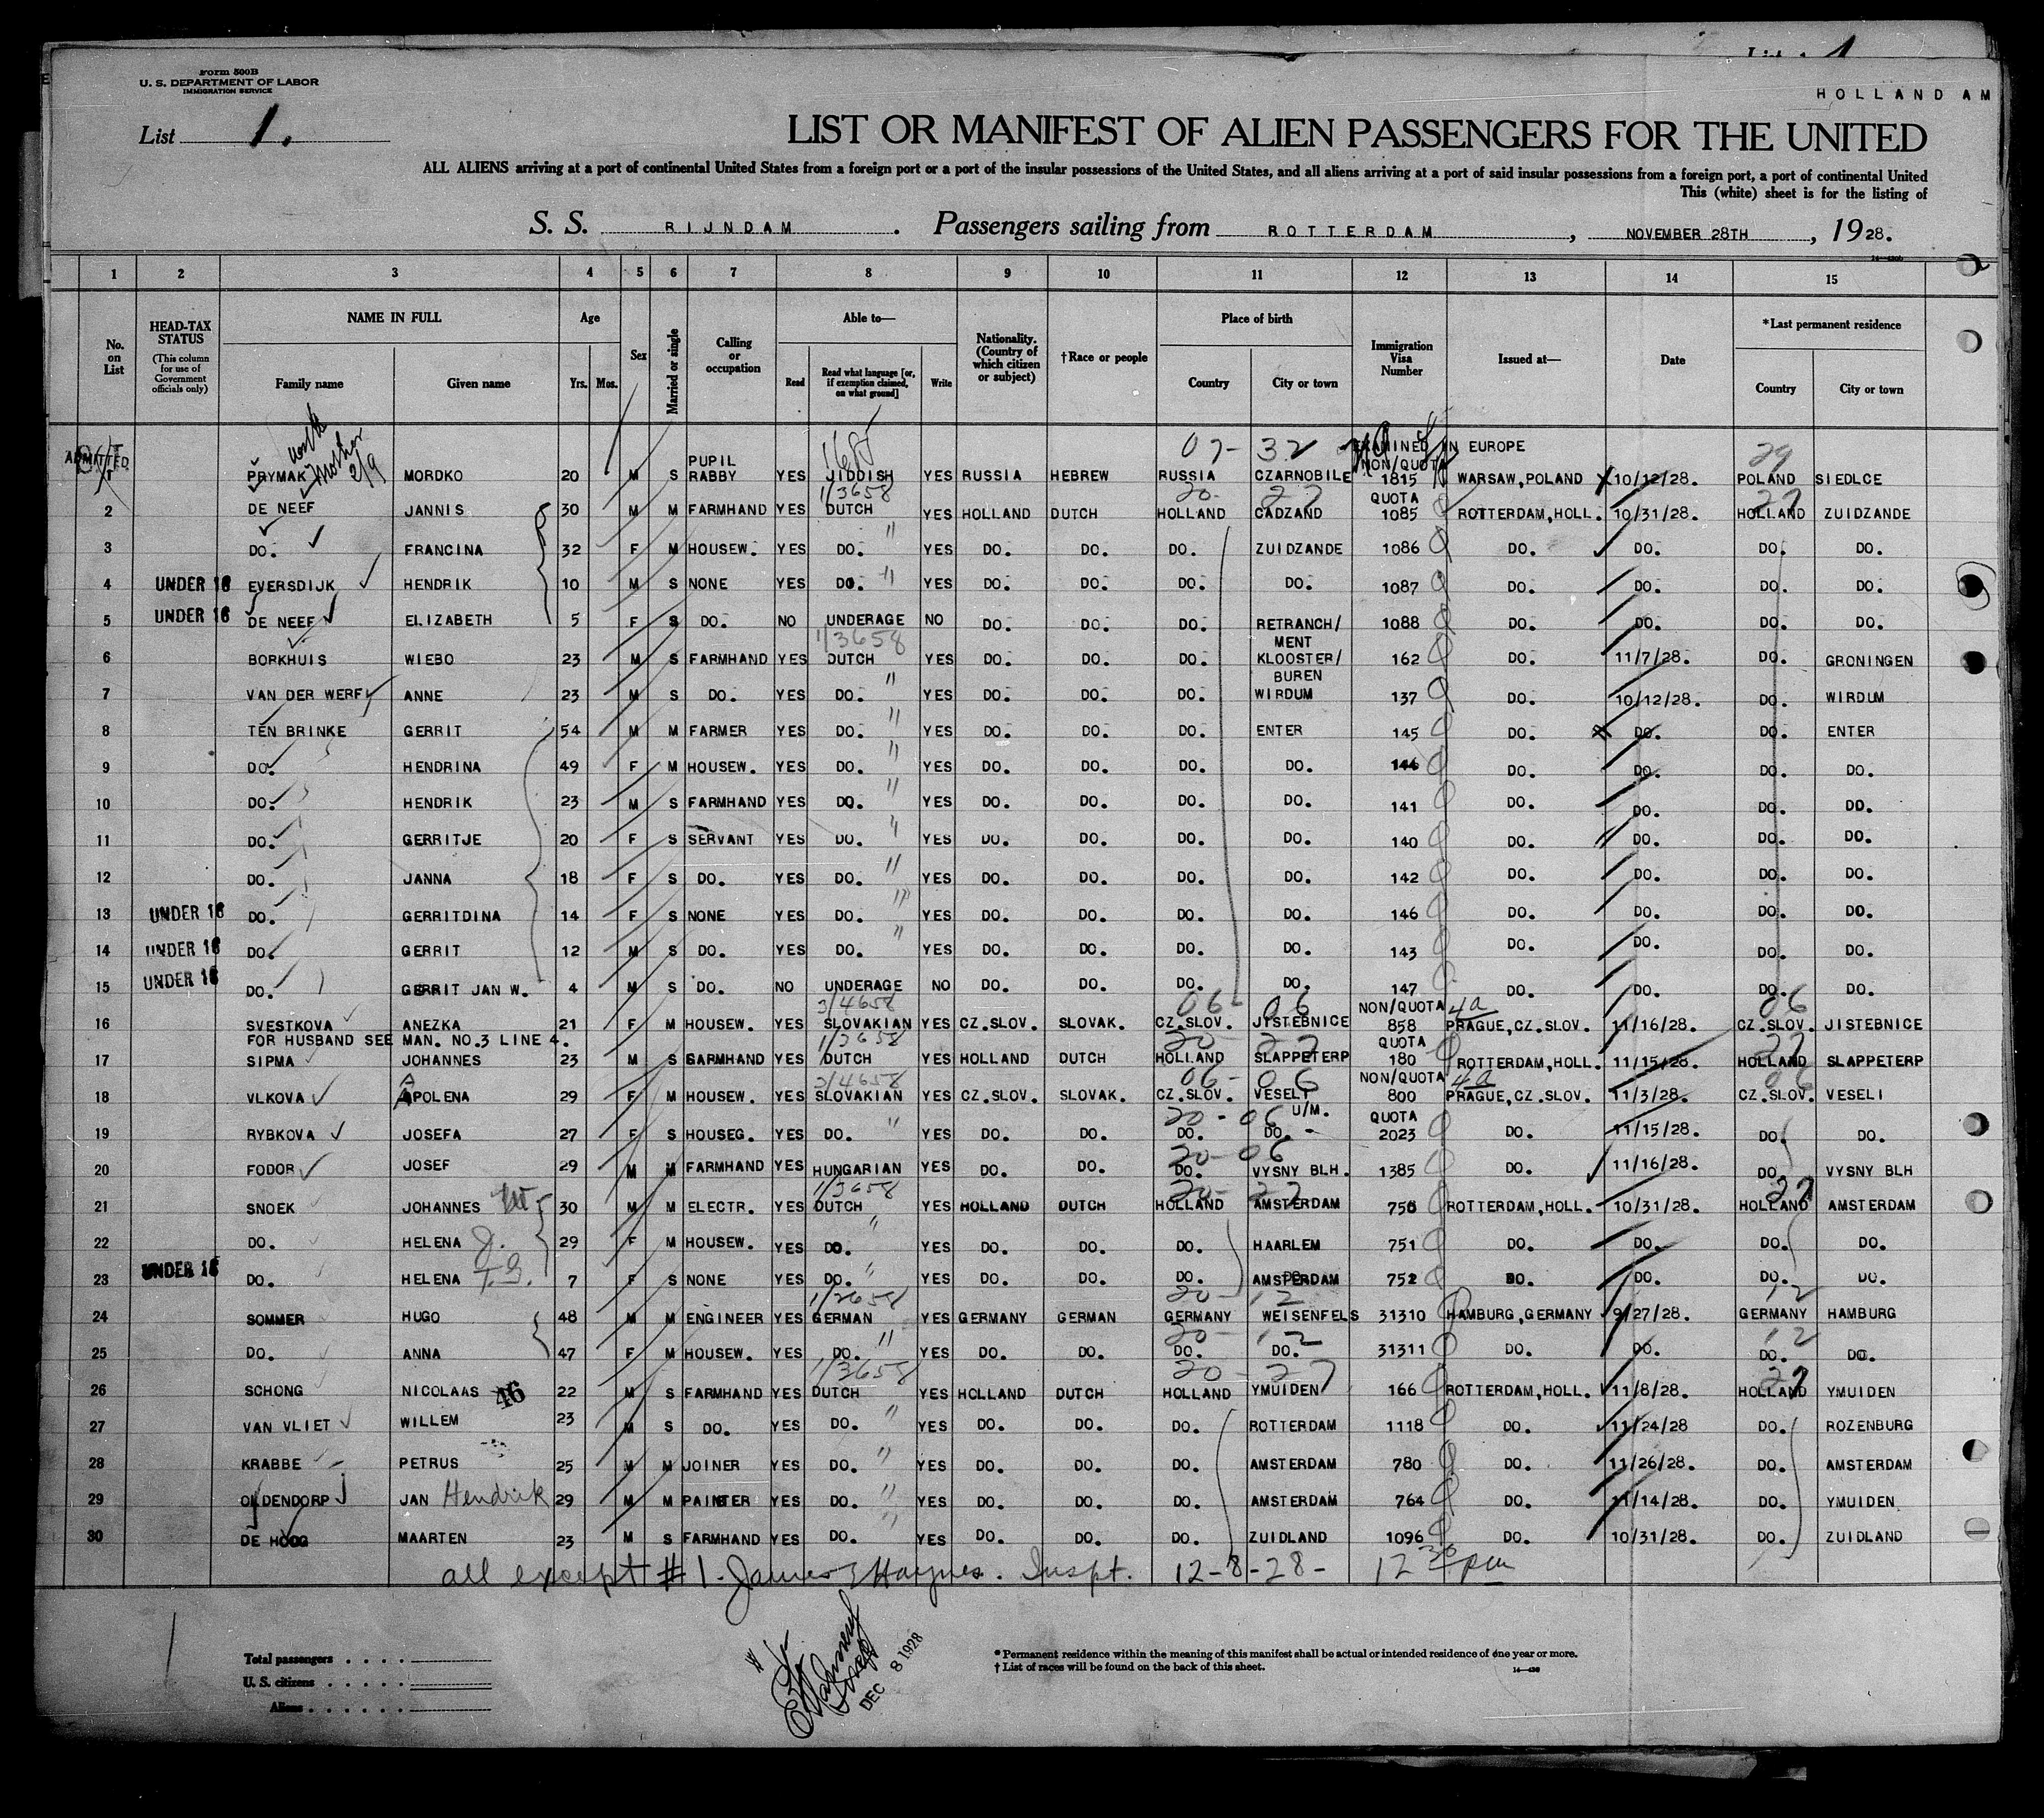 Form 500B
U. S. DEPARTMENT OF LABOR
IMMIGRATION SERVICE
HOLLAND AM
List 1.
LIST OR MANIFEST OF ALIEN PASSENGERS FOR THE UNITED
ALL ALIENS arriving at a port of continental United States from a foreign port or a port of the insular possessions of the United States, and all aliens arriving at a port of said insular possessions from a foreign port, a port of continental United
This (white) sheet is for the listing of
S. S. RIJNDAM. Passengers sailing from ROTTERDAM, NOVEMBER 28TH, 1928.
1 2 3 4 5 6 7 8 9 10 11 12 13 14 15
No. on List HEAD-TAX STATUS (This column for use of Government officials only) NAME IN FULL Family name Given name Age Yrs. Mos. Sex Married or single Calling or occupation Able to— Read Read what language [or, if exemption claimed, on what ground] Write Nationality. (Country of which citizen or subject) †Race or people Place of birth Country City or town Immigration Visa Number Issued at— Date *Last permanent residence Country City or town
07-32 EXAMINED IN EUROPE 29
ADMITTED 1 PRYMAK MORDKO 20 M S PUPIL RABBY YES JIDDISH YES RUSSIA HEBREW RUSSIA CZARNOBILE NON/QUOTA 1815 WARSAW, POLAND 10/12/28. POLAND SIEDLCE
1/3658 20- 27 27
2 DE NEEF JANNIS 30 M M FARMHAND YES DUTCH YES HOLLAND DUTCH HOLLAND CADZAND QUOTA 1085 ROTTERDAM, HOLL. 10/31/28. HOLLAND ZUIDZANDE
3 DO. FRANCINA 32 F M HOUSEW. YES DO. " YES DO. DO. DO. ZUIDZANDE 1086 DO. DO. DO. DO.
4 UNDER 16 EVERSDIJK HENDRIK 10 M S NONE YES DO. " YES DO. DO. DO. DO. 1087 DO. DO. DO. DO.
5 UNDER 16 DE NEEF ELIZABETH 5 F S DO. NO UNDERAGE NO DO. DO. DO. RETRANCH/MENT 1088 DO. DO. DO. DO.
1/3658
6 BORKHUIS WIEBO 23 M S FARMHAND YES DUTCH YES DO. DO. DO. KLOOSTER/BUREN 162 DO. 11/7/28. DO. GRONINGEN
7 VAN DER WERF ANNE 23 M S DO. YES DO. " YES DO. DO. DO. WIRDUM 137 DO. 10/12/28. DO. WIRDUM
8 TEN BRINKE GERRIT 54 M M FARMER YES DO. " YES DO. DO. DO. ENTER 145 DO. DO. DO. ENTER
9 DO. HENDRINA 49 F M HOUSEW. YES DO. " YES DO. DO. DO. DO. 144 DO. DO. DO. DO.
10 DO. HENDRIK 23 M S FARMHAND YES DO. " YES DO. DO. DO. DO. 141 DO. DO. DO. DO.
11 DO. GERRITJE 20 F S SERVANT YES DO. " YES DO. DO. DO. DO. 140 DO. DO. DO. DO.
12 DO. JANNA 18 F S DO. YES DO. " YES DO. DO. DO. DO. 142 DO. DO. DO. DO.
13 UNDER 16 DO. GERRITDINA 14 F S NONE YES DO. " YES DO. DO. DO. DO. 146 DO. DO. DO. DO.
14 UNDER 16 DO. GERRIT 12 M S DO. YES DO. " YES DO. DO. DO. DO. 143 DO. DO. DO. DO.
15 UNDER 16 DO. GERRIT JAN W. 4 M S DO. NO UNDERAGE NO DO. DO. DO. DO. 147 DO. DO. DO. DO.
3/4658 06- 06 4a 06
16 SVESTKOVA ANEZKA 21 F M HOUSEW. YES SLOVAKIAN YES CZ.SLOV. SLOVAK. CZ.SLOV. JISTEBNICE NON/QUOTA 858 PRAGUE, CZ.SLOV. 11/16/28. CZ.SLOV. JISTEBNICE
FOR HUSBAND SEE MAN. NO.3 LINE 4.
1/3658 20- 27 27
17 SIPMA JOHANNES 23 M S GARMHAND YES DUTCH YES HOLLAND DUTCH HOLLAND SLAPPETERP QUOTA 180 ROTTERDAM, HOLL. 11/15/28. HOLLAND SLAPPETERP
3/4658 06- 06 4a 06
18 VLKOVA APOLENA 29 F M HOUSEW. YES SLOVAKIAN YES CZ.SLOV. SLOVAK. CZ.SLOV. VESELI U/M. NON/QUOTA 800 PRAGUE, CZ.SLOV. 11/3/28. CZ.SLOV. VESELI
20-06
19 RYBKOVA JOSEFA 27 F S HOUSEG. YES DO. " YES DO. DO. DO. DO. QUOTA 2023 DO. 11/15/28. DO. DO.
20-06
20 FODOR JOSEF 29 M M FARMHAND YES HUNGARIAN YES DO. DO. DO. VYSNY BLH. 1385 DO. 11/16/28. DO. VYSNY BLH
1/3658 20- 27 27
21 SNOEK JOHANNES 30 M M ELECTR. YES DUTCH YES HOLLAND DUTCH HOLLAND AMSTERDAM 750 ROTTERDAM, HOLL. 10/31/28. HOLLAND AMSTERDAM
22 DO. HELENA J. 29 F M HOUSEW. YES DO. " YES DO. DO. DO. HAARLEM 751 DO. DO. DO. DO.
23 UNDER 16 DO. HELENA T.G. 7 F S NONE YES DO. " YES DO. DO. DO. AMSTERDAM 752 DO. DO. DO. DO.
1/2658 20- 12 12
24 SOMMER HUGO 48 M M ENGINEER YES GERMAN YES GERMANY GERMAN GERMANY WEISENFELS 31310 HAMBURG, GERMANY 9/27/28. GERMANY HAMBURG
20- 12 12
25 DO. ANNA 47 F M HOUSEW. YES DO. " YES DO. DO. DO. DO. 31311 DO. DO. DO. DO.
1/3658 20-27 27
26 SCHONG NICOLAAS 46 22 M S FARMHAND YES DUTCH YES HOLLAND DUTCH HOLLAND YMUIDEN 166 ROTTERDAM, HOLL. 11/8/28. HOLLAND YMUIDEN
27 VAN VLIET WILLEM 23 M S DO. YES DO. " YES DO. DO. DO. ROTTERDAM 1118 DO. 11/24/28 DO. ROZENBURG
28 KRABBE PETRUS 25 M M JOINER YES DO. " YES DO. DO. DO. AMSTERDAM 780 DO. 11/26/28. DO. AMSTERDAM
29 OLDENDORP JAN Hendrik 29 M M PAINTER YES DO. " YES DO. DO. DO. AMSTERDAM 764 DO. 11/14/28. DO. YMUIDEN
30 DE HOOG MAARTEN 23 M S FARMHAND YES DO. " YES DO. DO. DO. ZUIDLAND 1096 DO. 10/31/28. DO. ZUIDLAND
all except #1. James E Haynes. Inspt. 12-8-28- 12 30 pm
Total passengers
U. S. citizens
Aliens
DEC 8 1928
* Permanent residence within the meaning of this manifest shall be actual or intended residence of one year or more.
† List of races will be found on the back of this sheet.